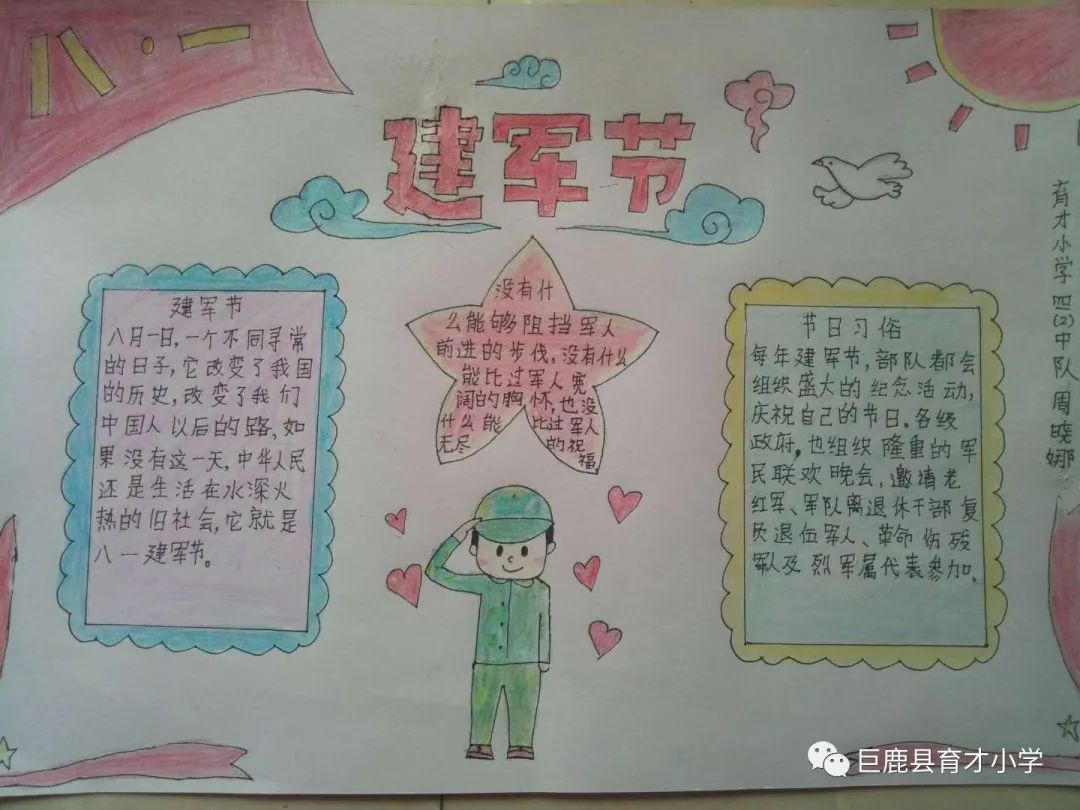 八·一
建军节
建军节
八月一日,一个不同寻常
的日子,它改变了我国
的历史,改变了我们
中国人以后的路,如
果没有这一天,中华人民
还是生活在水深火
热的旧社会,它就是
八一建军节。
没有什
么能够阻挡军人
前进的步伐,没有什么
能比过军人宽
阔的胸怀,也没
什么能比过军人
无尽的祝
福
节日习俗
每年建军节,部队都会
组织盛大的纪念活动,
庆祝自己的节日。各级
政府,也组织隆重的军
民联欢晚会,邀请老
红军、军队离退休干部复
员退伍军人、革命伤残
军人及烈军属代表参加。
育才小学四(2)中队周晓娜
巨鹿县育才小学